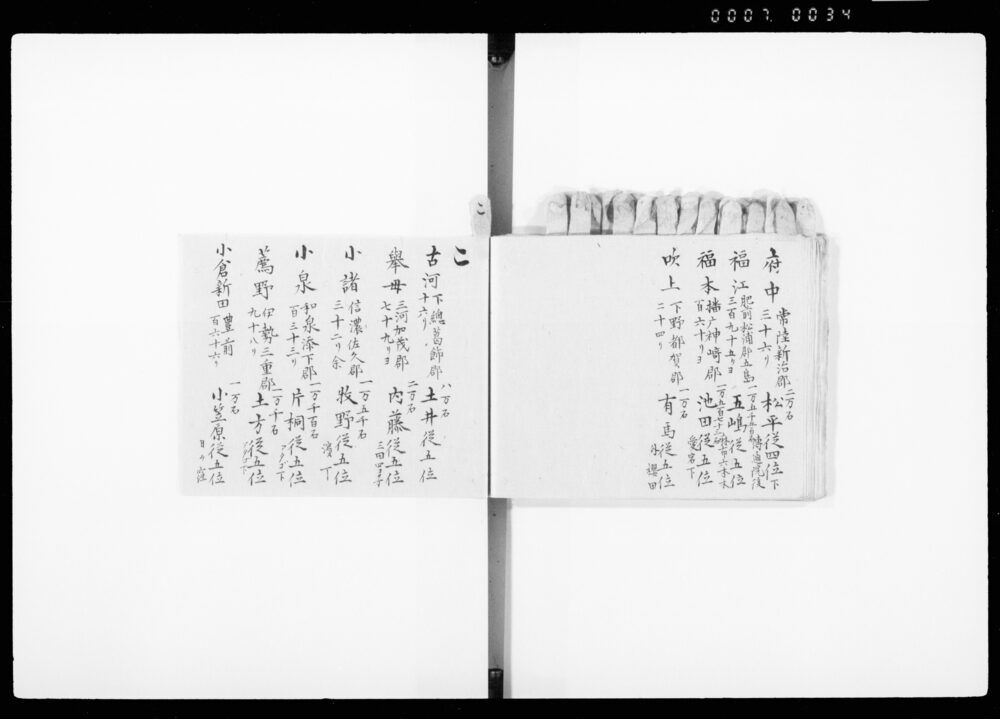 0007 0034
府中 常陸新治郡 二万石 松平従四位下
三十六リ
福江 肥前松浦郡五島 五嶋従五位
三百九十五リヨ
福本 播广神崎郡 池田従五位
百六十リヨ 愛宕下
吹上 下野都賀郡 一万石 有馬従五位
二十四リ 外櫻田
こ
こ
古河 下總葛飾郡 八万石 土井従五位
十六リ
挙母 三河加茂郡 二万石 内藤従五位
七十九リヨ
小諸 信濃佐久郡 一万五千石 牧野従五位
三十二リ余 濱丁
小泉 和泉添下郡 一万千百石 片桐従五位
百三十三リ
薦野 伊勢三重郡 一万千石 土方従五位
九十八リ
小倉新田 豊前 一万石 小笠原従五位
百六十六リ 日ヶ窪